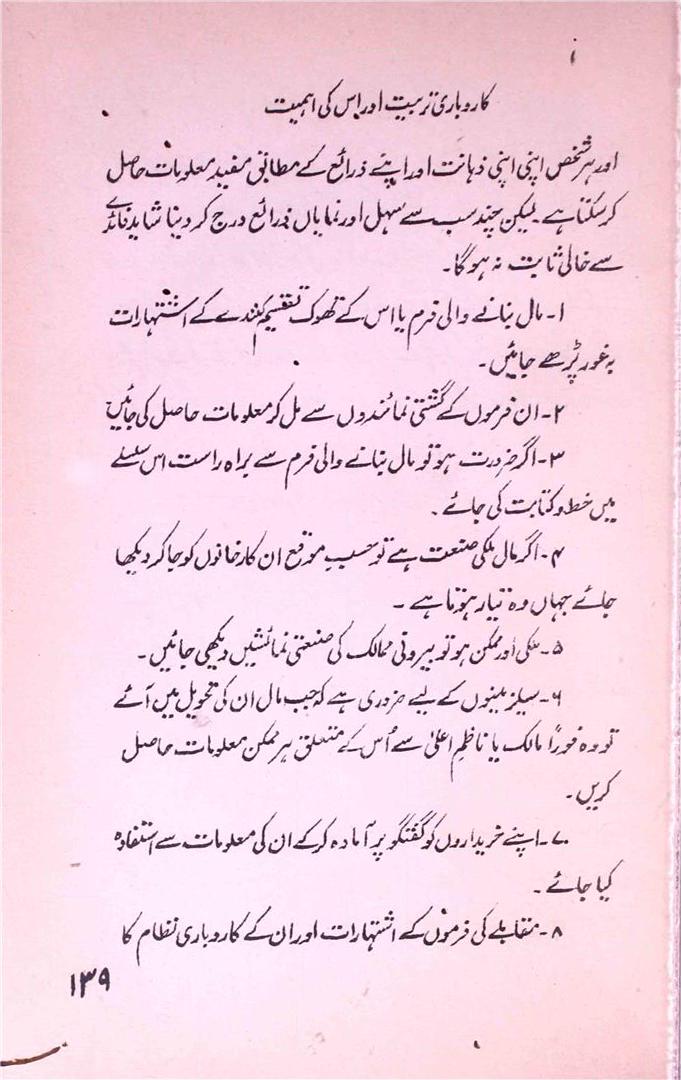 کاروباری تربیت اور اس کی اہمیت
اور ہر شخص اپنی اپنی ذہانت اور اپنے ذرائع کے مطابق مفید معلومات حاصل
کر سکتا ہے۔ لیکن چند سب سے سہل اور نمایاں ذرائع درج کر دینا شاید فائدے
سے خالی ثابت نہ ہوگا۔
۱۔ مال بنانے والی فرم یا اس کے تھوک تقسیم کنندے کے اشتہارات
بہ غور پڑھے جائیں۔
۲۔ ان فرموں کے گشتی نمائندوں سے مل کر معلومات حاصل کی جائیں
۳۔ اگر ضرورت ہو تو مال بنانے والی فرم سے براہ راست اس سلسلے
میں خط و کتابت کی جائے۔
۴۔ اگر مال ملکی صنعت ہے تو حسبِ موقع ان کارخانوں کو جا کر دیکھا
جائے جہاں وہ تیار ہوتا ہے۔
۵۔ ملکی اور ممکن ہو تو بیرونی ممالک کی صنعتی نمائشیں دیکھی جائیں۔
۶۔ سیلز مینوں کے لیے ضروری ہے کہ جب مال ان کی تحویل میں آئے
تو وہ فوراً مالک یا ناظمِ اعلیٰ سے اُس کے متعلق ہر ممکن معلومات حاصل
کریں۔
۷۔ اپنے خریداروں کو گفتگو پر آمادہ کرکے ان کی معلومات سے استفادہ
کیا جائے۔
۸۔ مقابلے کی فرموں کے اشتہارات اور ان کے کاروباری نظام کا
۱۳۹